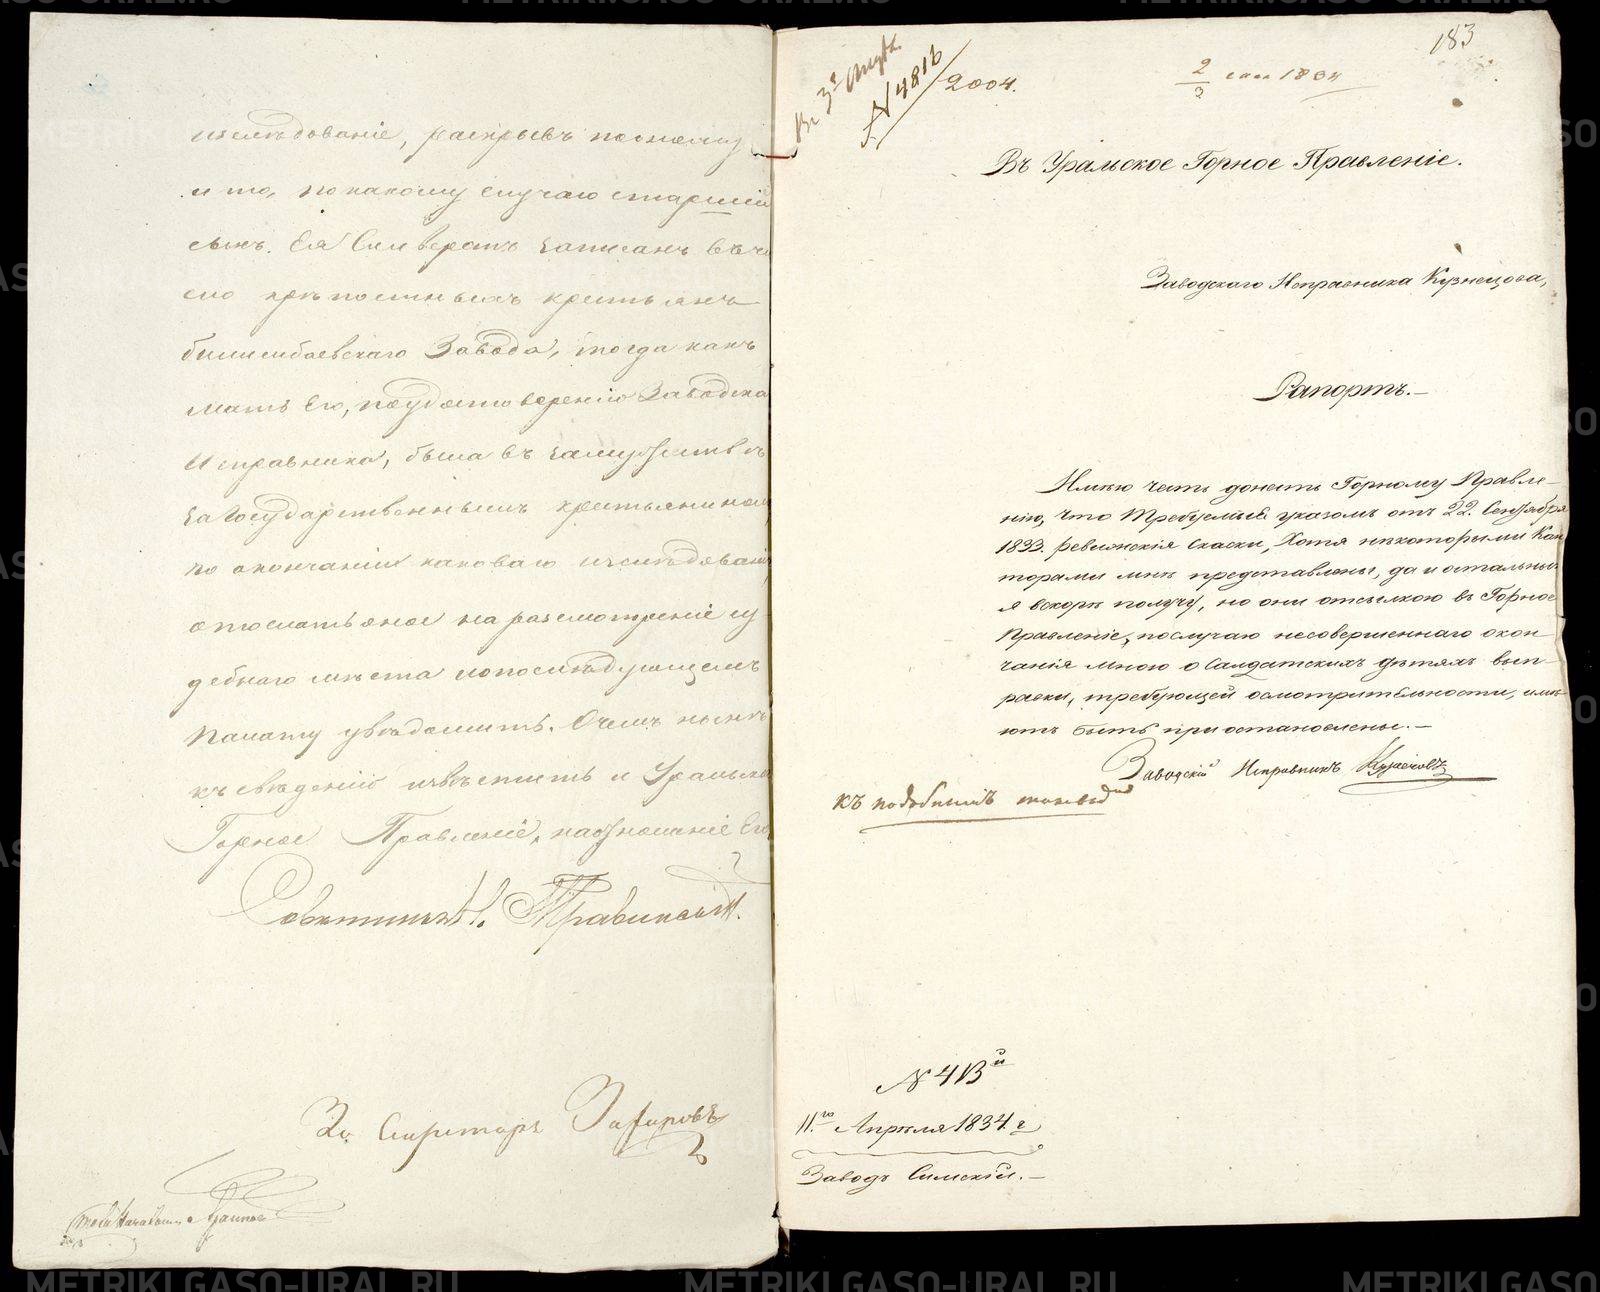 изслѣдованіе, раскрывъ по оному
и то, по какому случаю старшій
сынъ Ея Селиверстъ записанъ въ чи
сло крѣпостныхъ крестьянъ
билимбаевскаго Завода, тогда какъ
мать Его, по удостоверенію Заводска
Исправника, была въ замужствѣ
за Государственнымъ крестьянином
по окончаніи каковаго изслѣдованія
отослать оное на разсмотреніе су
дебнаго мѣста и о послѣдующемъ
палату увѣдомить. О чемъ нынѣ
къ свѣденію извѣстить и Уральско
Горное Правленіе, на отношеніе Его
Совѣтникъ
За Секретаря
183
№ 4816
2004.
1834
Въ Уральское Горное Правленіе.
Заводскаго Исправника Кузнецова,
Рапортъ.—
Имѣю честь донесть Горному Правле-
нію, что требуемыя указомъ отъ 22. Сентября
1833. ревизскія сказки, Хотя нѣкоторыми Кон
торами мнѣ представлены, да и остальные
я вскорѣ получу, но они отсылкою въ Горное
Правленіе, по случаю несовершеннаго окон-
чанія мною о Салдатскихъ дѣтяхъ вып-
равки, требующей осмотрительности, имѣ-
ютъ быть пріостановлены.—
Заводскій Исправникъ Кузнецовъ
къ подобнымъ
№ 413й
11.го Апрѣля 1834. г
Заводъ Симскій.—